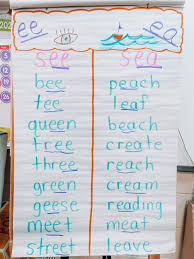 ee ea
see sea
bee peach
tee leaf
queen beach
tree create
three reach
green cream
geese reading
meet meat
street leave